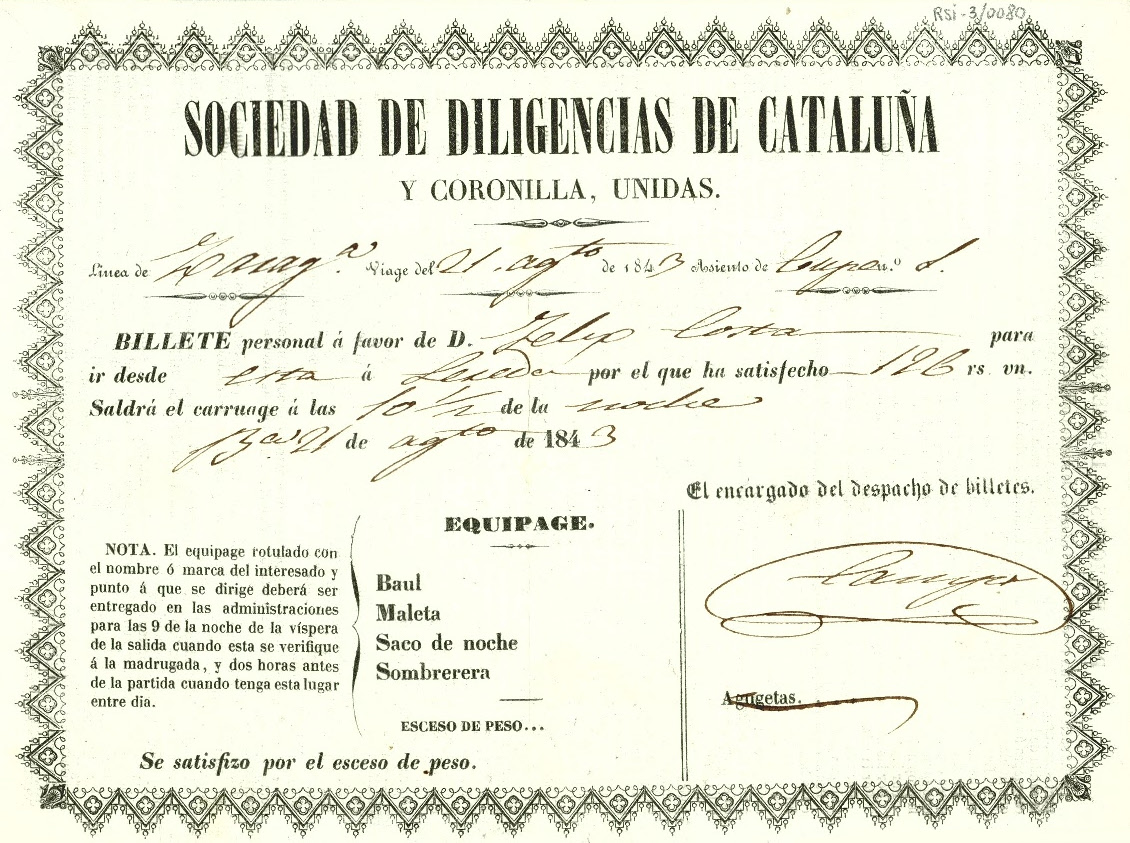 RSi-3/0080
SOCIEDAD DE DILIGENCIAS DE CATALUÑA
Y CORONILLA, UNIDAS.
Linea de Zarag.ª Viage del 21 agto de 1843 Asiento de Cupe n.º 1.
BILLETE personal á favor de D. Felix Costa para
ir desde esta á por el que ha satisfecho 126 rs vn.
Saldrá el carruage á las 10 1/2 de la noche
Bna 21 de agto de 1843
El encargado del despacho de billetes.
EQUIPAGE.
NOTA. El equipage rotulado con
el nombre ó marca del interesado y
punto á que se dirige deberá ser
entregado en las administraciones
para las 9 de la noche de la víspera
de la salida cuando esta se verifique
á la madrugada, y dos horas antes
de la partida cuando tenga esta lugar
entre dia.
Baul
Maleta
Saco de noche
Sombrerera
ESCESO DE PESO...
Agugetas.
Se satisfizo por el esceso de peso.